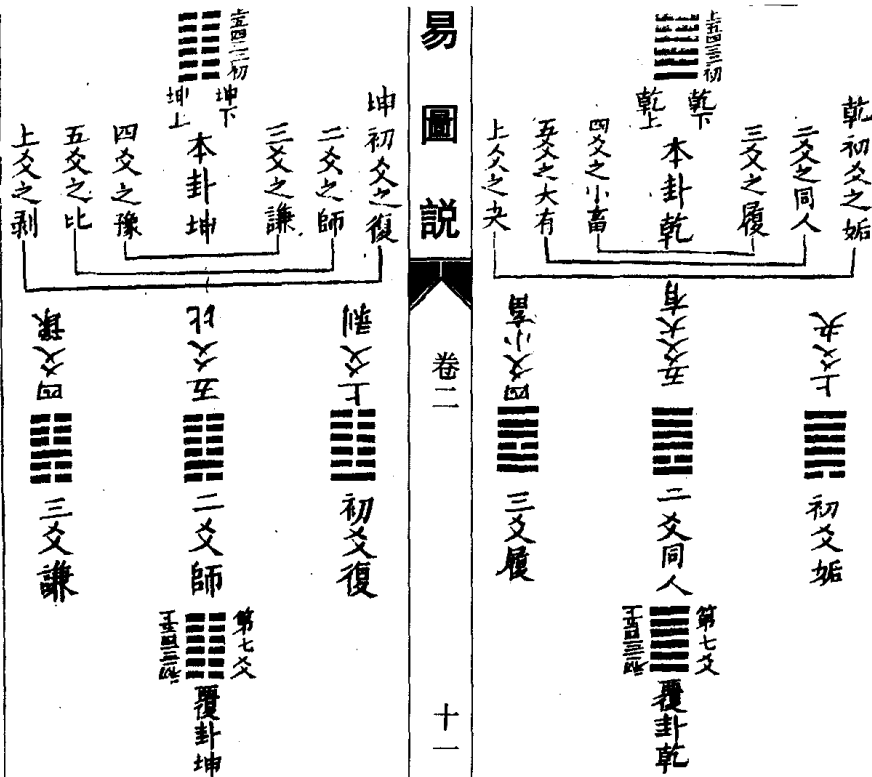 上五四三二初
乾下
乾上
本卦乾
乾初爻之姤
二爻之同人
三爻之履
四爻之小畜
五爻之大有
上爻之夬
上爻夬
初爻姤
五爻大有
二爻同人
四爻小畜
三爻履
第七爻
上五四三二初
覆卦乾
易圖説
卷二
十一
上五四三二初
坤下
坤上
本卦坤
坤初爻之復
二爻之師
三爻之謙
四爻之豫
五爻之比
上爻之剥
上爻剥
初爻復
五爻比
二爻師
四爻豫
三爻謙
第七爻
上五四三二初
覆卦坤